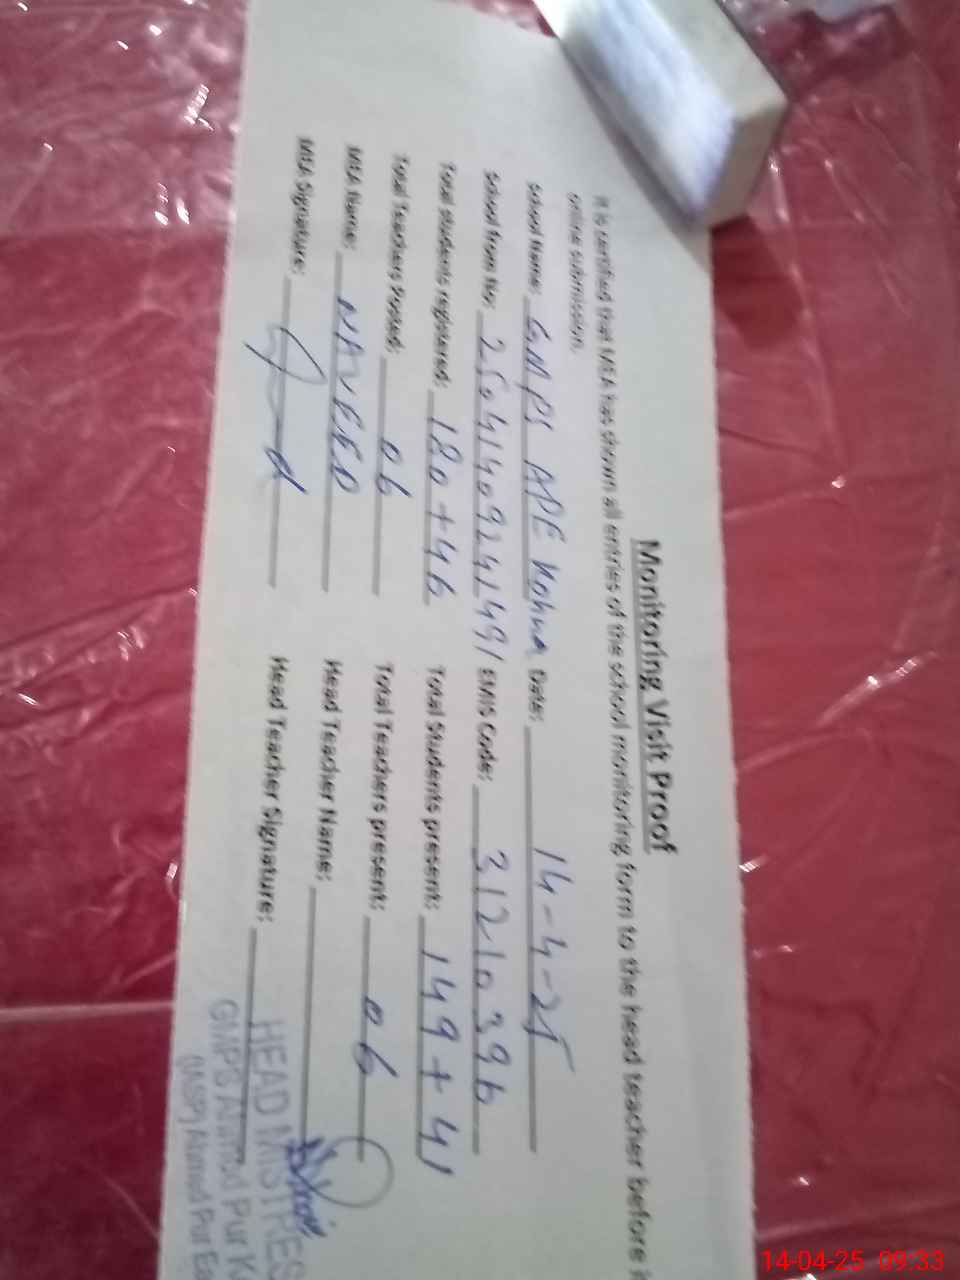 Monitoring Visit Proof
It is certified that MEA has shown all entries of the school monitoring form to the head teacher before
online submission.
School Name: GMPS APE Kohna Date: 14-4-25
School from No: 2504140924149/ EMIS Code: 31210396
Total Students registered: 180+46 Total Students present: 149+41
Total Teachers Posted: 06 Total Teachers present: 06
MEA Name: NAVEED Head Teacher Name:
MEA Signature: Head Teacher Signature:
HEAD MISTRES
GMPS Ahmed Pur K
Ahmed Pur Ea
14-04-25 09:33